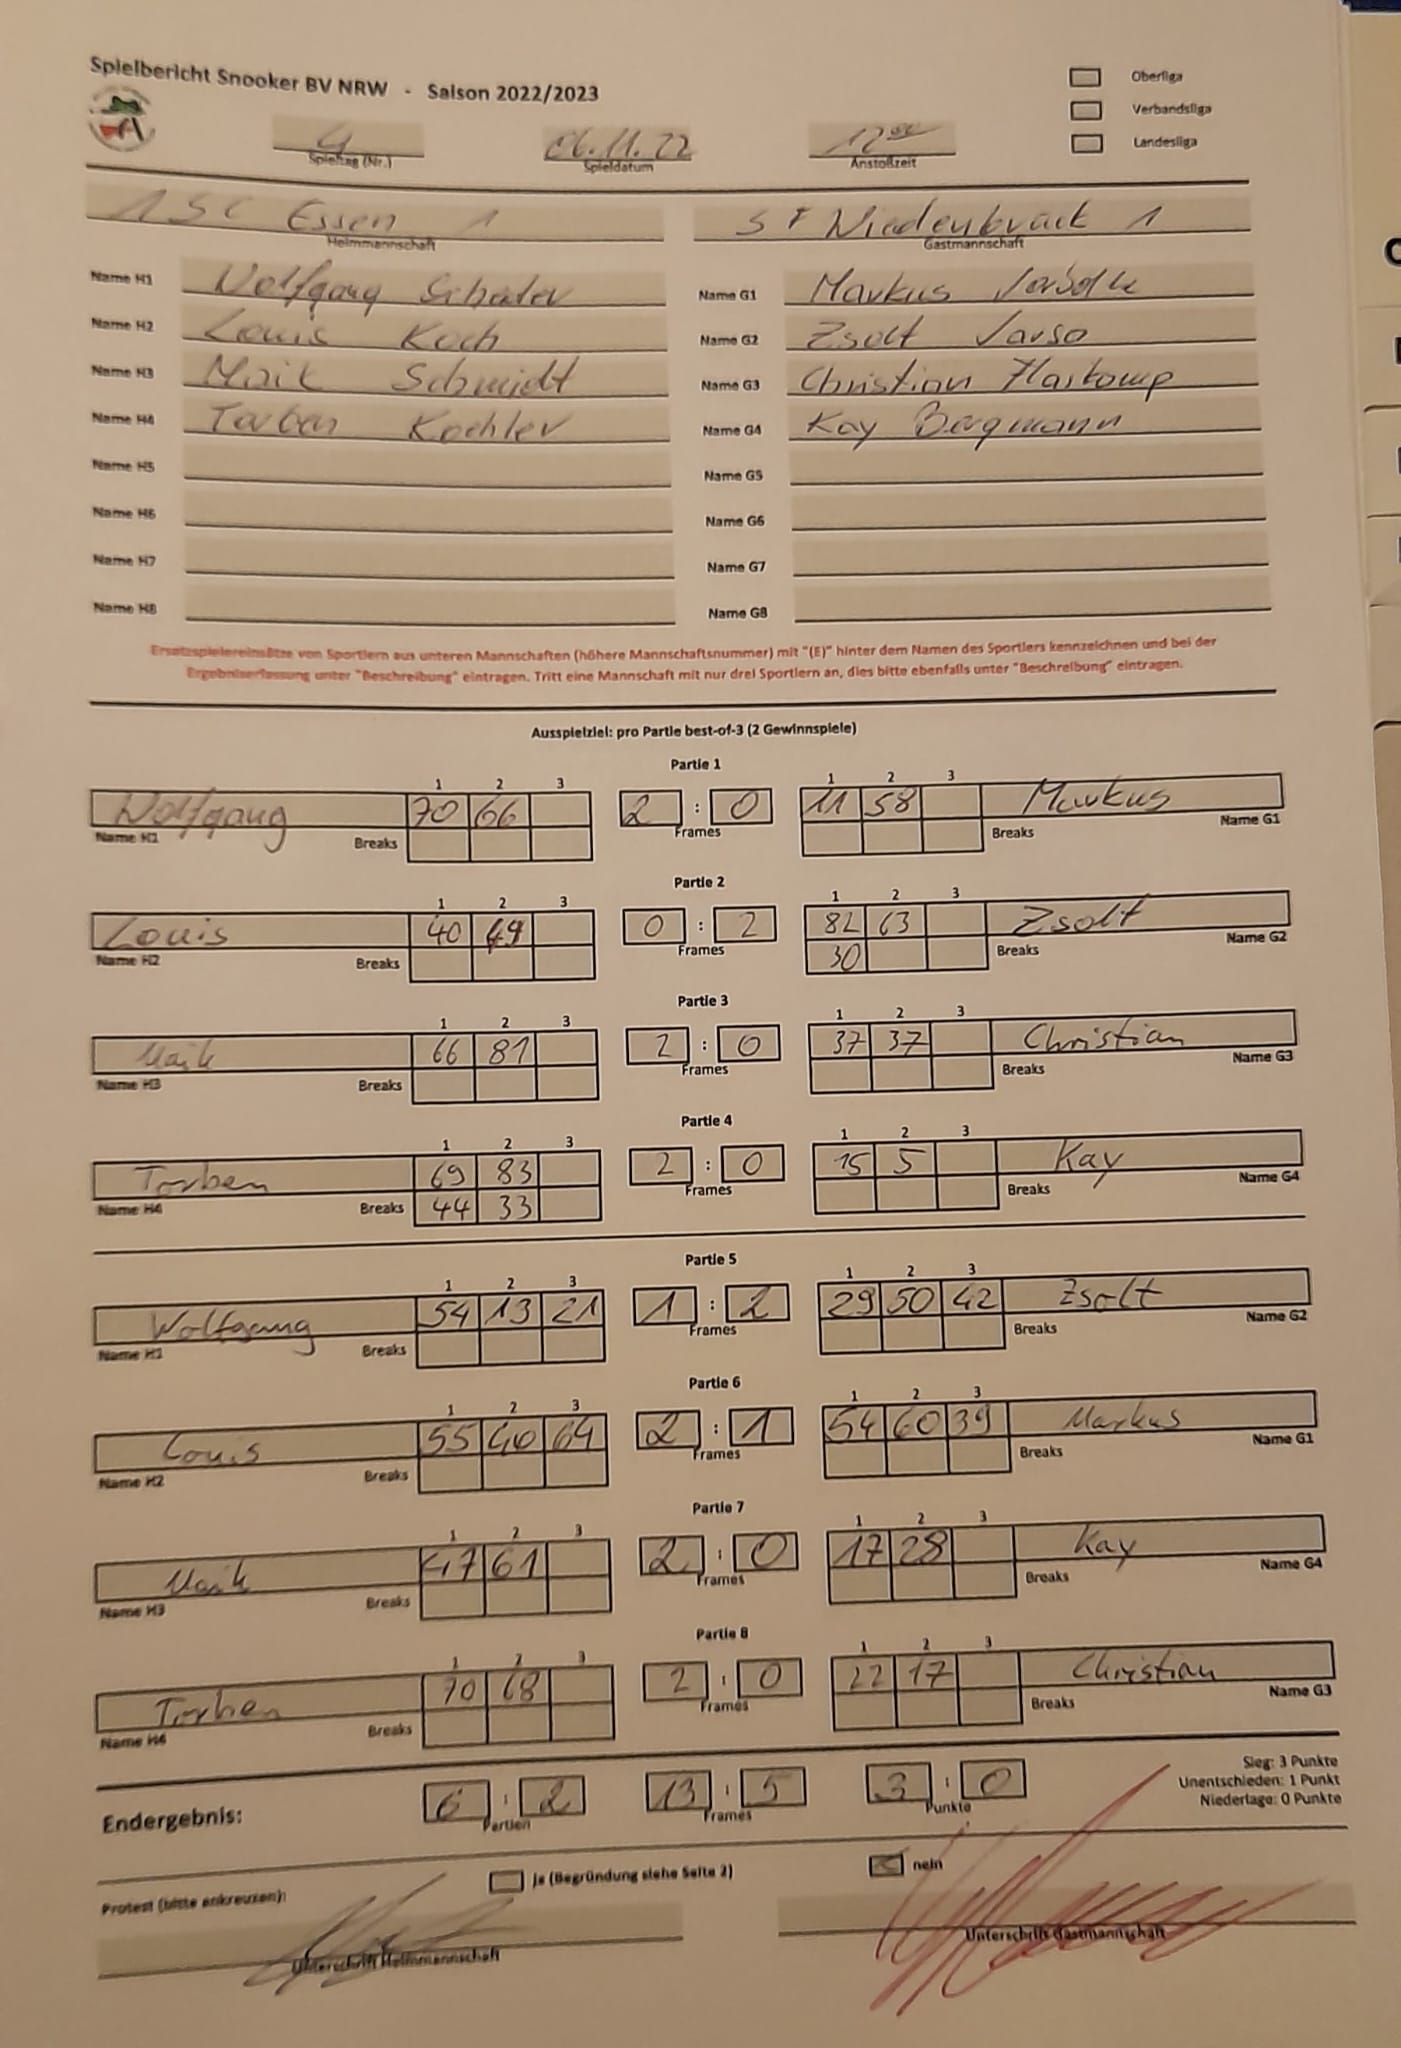 Spielbericht Snooker BV NRW - Saison 2022/2023
Oberliga
Verbandsliga
Landesliga
4 06.11.22 12 00
Spieltag (Nr.) Spieldatum Anstoßzeit
1 SC Essen 1
Heimmannschaft
SF Wiedenbrück 1
Gastmannschaft
Name H1 Wolfgang Name G1 Markus
Name H2 Louis Koch Name G2 Zsolt Varsa
Name H3 Maik Schmidt Name G3 Christian Hartkamp
Name H4 Torben Koehler Name G4 Kay Bergmann
Name H5 Name G5
Name H6 Name G6
Name H7 Name G7
Name H8 Name G8
Ersatzspielereinsätze von Sportlern aus unteren Mannschaften (höhere Mannschaftsnummer) mit "(E)" hinter dem Namen des Sportlers kennzeichnen und bei der
Ergebniserfassung unter "Beschreibung" eintragen. Tritt eine Mannschaft mit nur drei Sportlern an, dies bitte ebenfalls unter "Beschreibung" eintragen.
Ausspielziel: pro Partie best-of-3 (2 Gewinnspiele)
Partie 1
1 2 3 1 2 3
Wolfgang 70 66 2 : 0 11 58 Markus
Name H1 Breaks Frames Breaks Name G1
Partie 2
1 2 3 1 2 3
Louis 40 49 0 : 2 82 63 Zsolt
Name H2 Breaks Frames 30 Breaks Name G2
Partie 3
1 2 3 1 2 3
Maik 66 81 2 : 0 37 37 Christian
Name H3 Breaks Frames Breaks Name G3
Partie 4
1 2 3 1 2 3
Torben 69 83 2 : 0 15 5 Kay
Name H4 Breaks 44 33 Frames Breaks Name G4
Partie 5
1 2 3 1 2 3
Wolfgang 54 13 21 1 : 2 29 50 42 Zsolt
Name H1 Breaks Frames Breaks Name G2
Partie 6
1 2 3 1 2 3
Louis 55 40 64 2 : 1 54 60 39 Markus
Name H2 Breaks Frames Breaks Name G1
Partie 7
1 2 3 1 2 3
Maik 47 61 2 : 0 17 28 Kay
Name H3 Breaks Frames Breaks Name G4
Partie 8
1 2 3 1 2 3
Torben 70 68 2 : 0 22 17 Christian
Name H4 Breaks Frames Breaks Name G3
Endergebnis: 6 : 2 13 : 5 3 : 0
Partien Frames Punkte
Sieg: 3 Punkte
Unentschieden: 1 Punkt
Niederlage: 0 Punkte
Protest (bitte ankreuzen): ja (Begründung siehe Seite 2) nein
Unterschrift Heimmannschaft Unterschrift Gastmannschaft